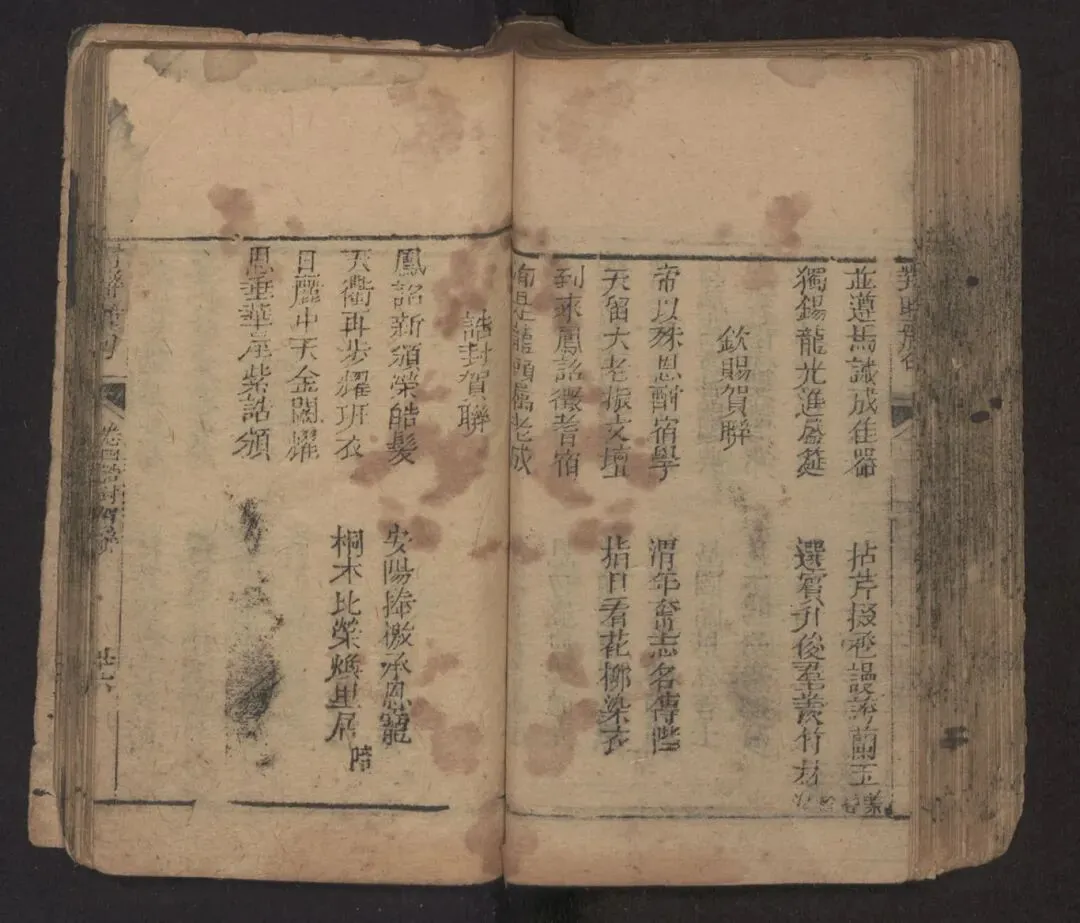 並遵馬誠成佳器
拈芹掇 謬詡蘭玉
獨錫龍光進盛筵
選賓升後羣羨竹材
欽賜賀聯
帝以殊恩酧宿學
渭年奮志名傳
天留大老振文壇
指日看花柳染衣
到來鳳詔徵耆宿
龍頭屬老成
誥封賀聯
鳳詔新頒榮皓髮
安陽捧檄承恩寵
天衢再步耀班衣
桐木比榮煥里居
日麗中天金闕耀
恩垂華 紫誥頒